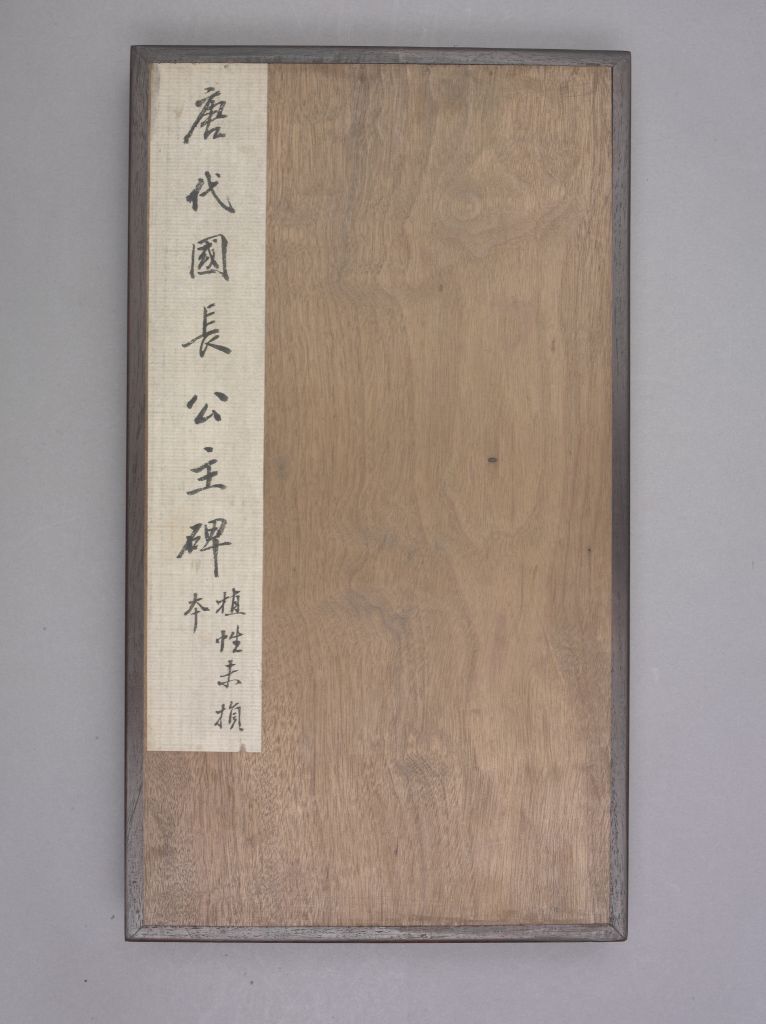 唐代國長公主碑
植性未損
本